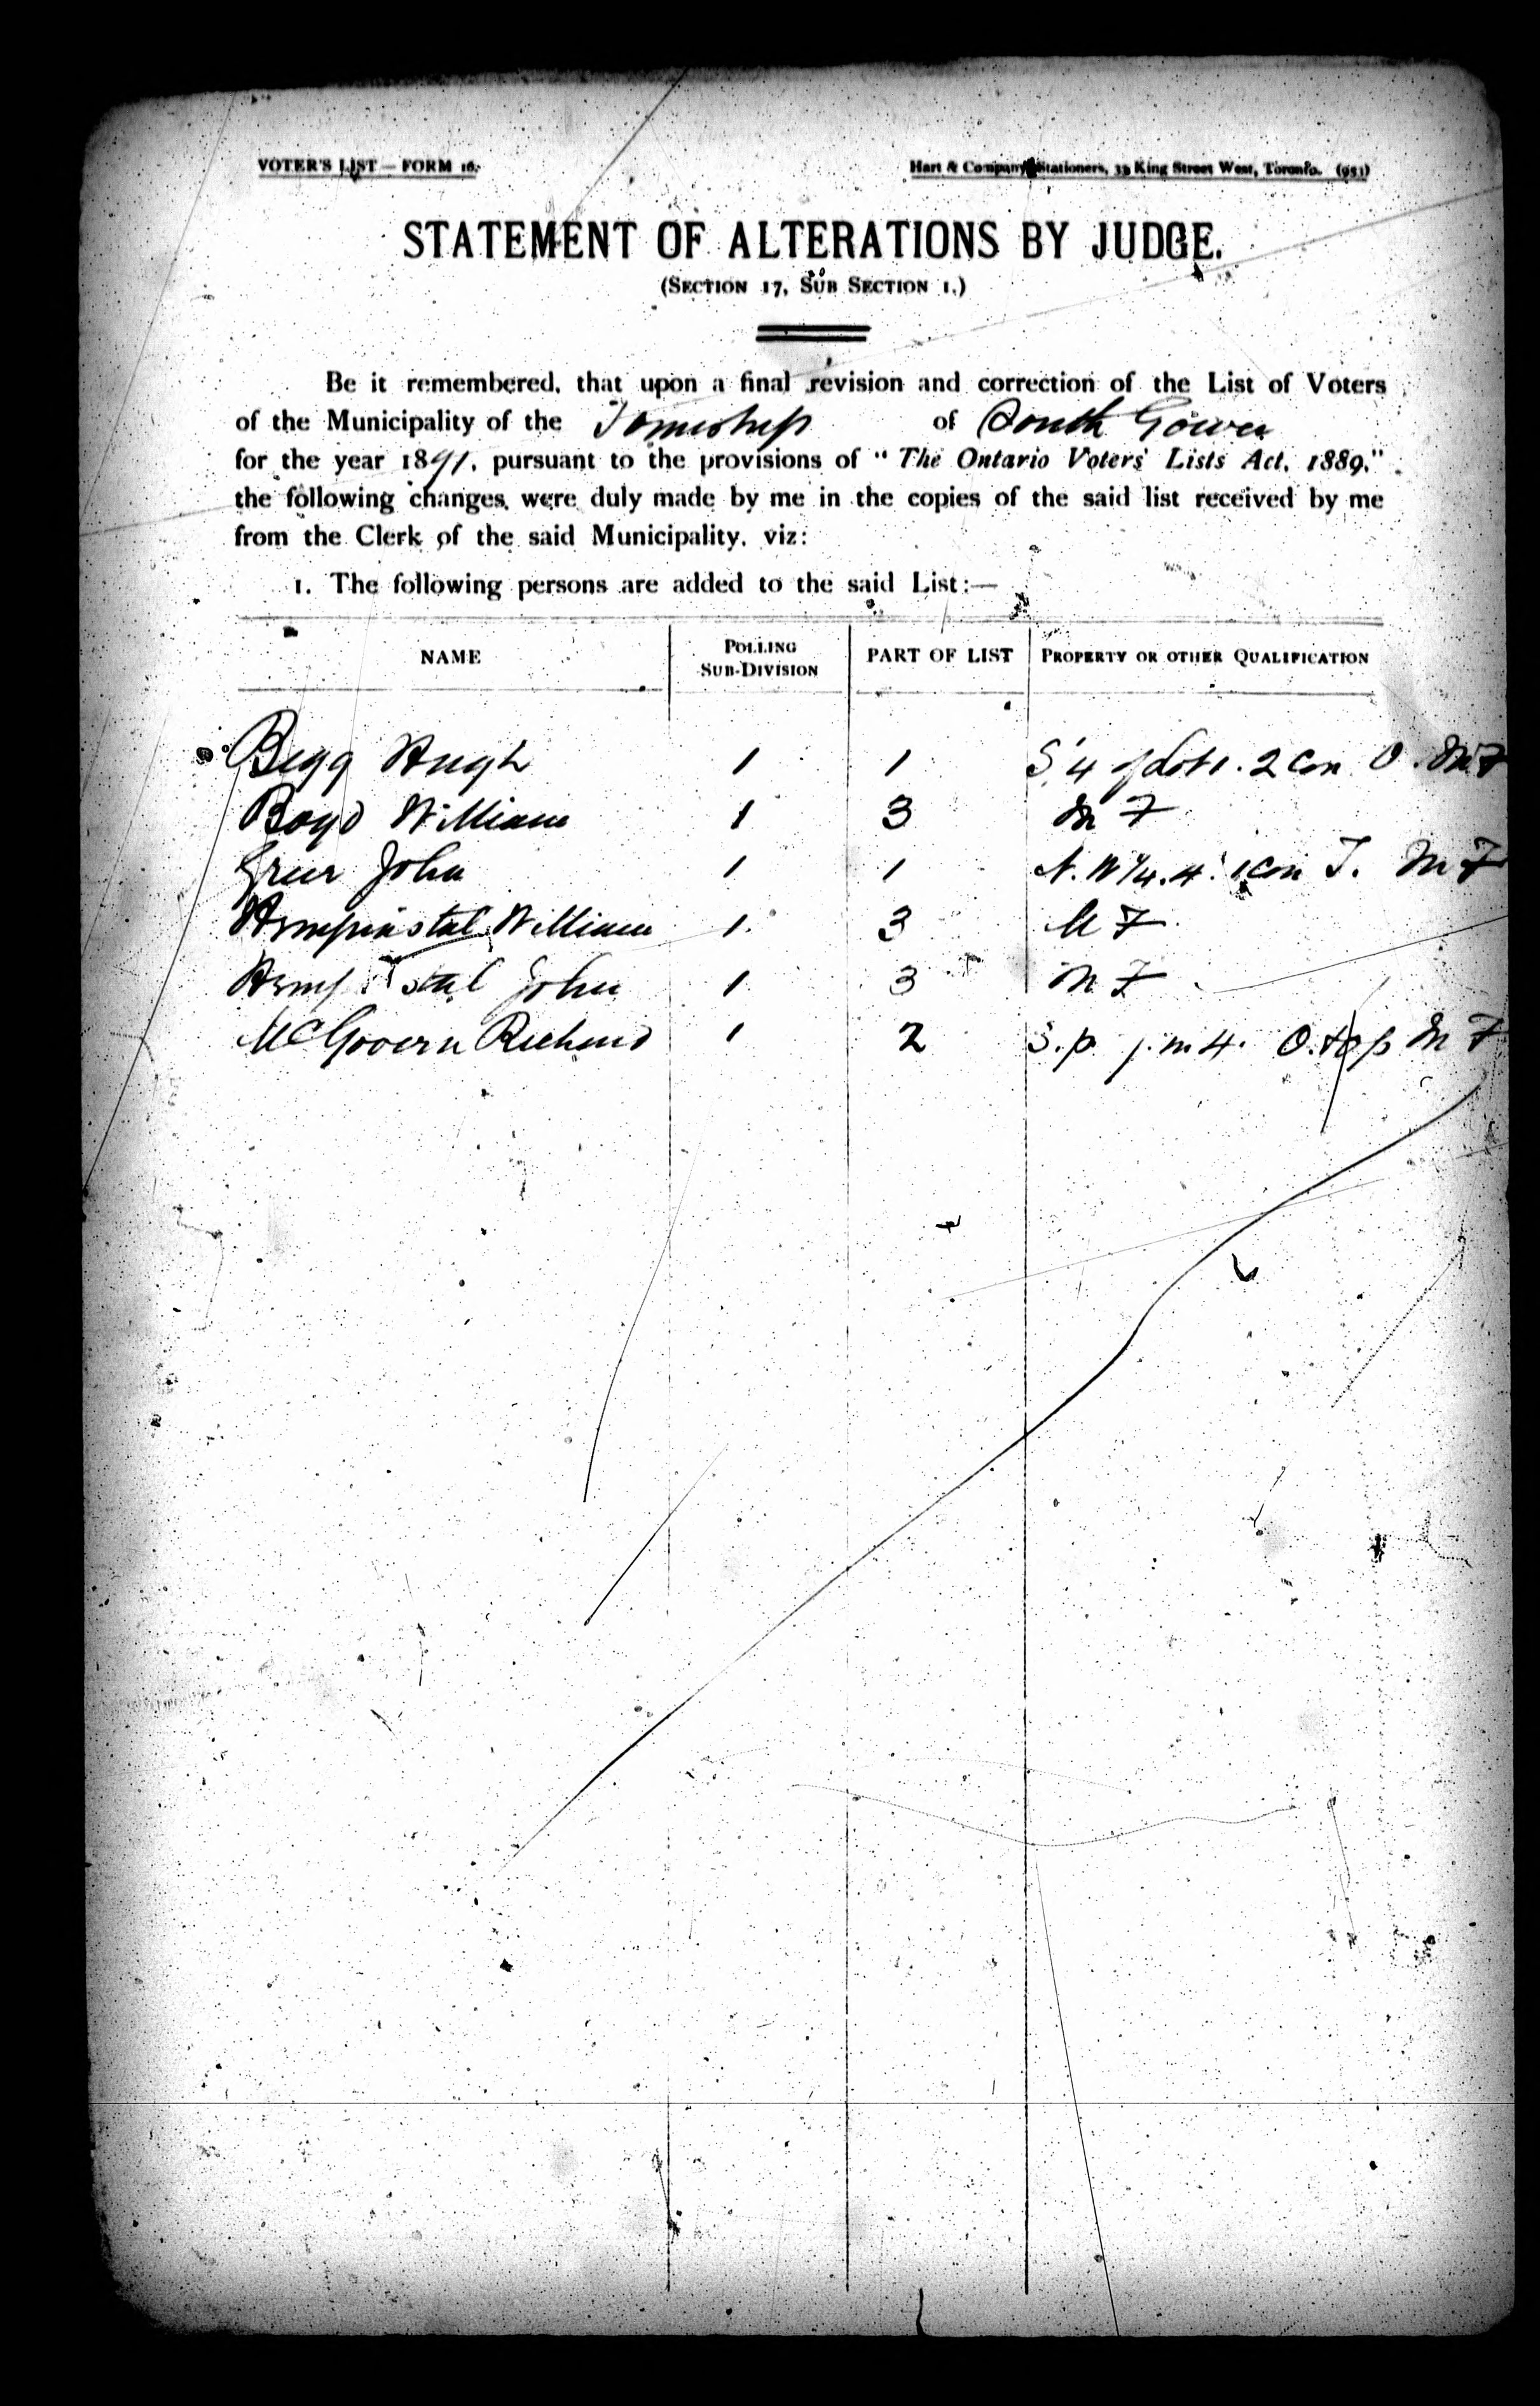 VOTER'S LIST — FORM 16.
Hart & Company, Stationers, 39 King Street West, Toronto. (953)
STATEMENT OF ALTERATIONS BY JUDGE.
(SECTION 17, SUB SECTION 1.)
Be it remembered, that upon a final revision and correction of the List of Voters
of the Municipality of the Township of South Gower
for the year 1891, pursuant to the provisions of "The Ontario Voters' Lists Act, 1889,"
the following changes were duly made by me in the copies of the said list received by me
from the Clerk of the said Municipality, viz:
1. The following persons are added to the said List:—
NAME POLLING SUB-DIVISION PART OF LIST PROPERTY OR OTHER QUALIFICATION
Begg Hugh 1 1 of Lot 1. 2 Con O. M F
Boyd William 1 3 M F
Greer John 1 1 N. W 1/4. 4. 1 Con T. M F
Hempinstal William 1 3 M F
John 1 3 M F
McGovern Richard 1 2 S. p. 4. O. M F